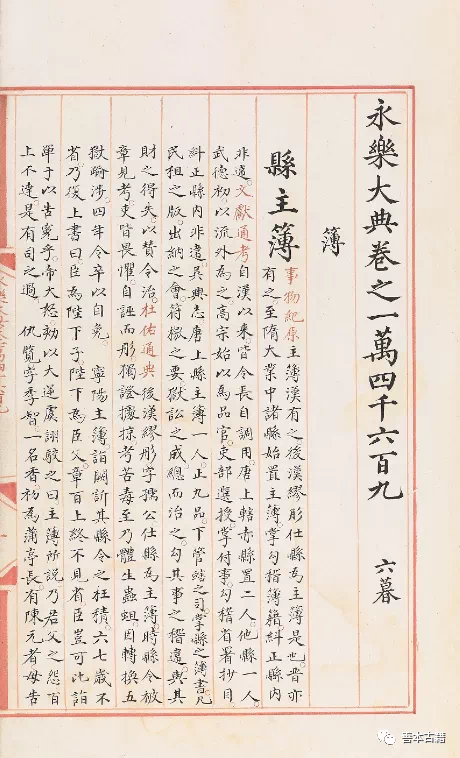 永樂大典卷之一萬四千六百九 六暮
簿
縣主簿
事物紀原主簿漢有之後漢繆肜仕縣為主簿是也晉亦
有之至隋大業中諸縣始置主簿掌勾稽簿籍糾正縣內
非違文獻通考自漢以來皆令長自調用唐上轄赤縣置二人他縣一人
武德初以流外為之高宗始以為品官吏部選授掌付事勾稽省署抄目
糾正縣內非違吳興志唐上縣主簿一人正九品下管轄之司掌縣之簿書凡
民租之版出納之會符檄之要獄訟之成總而治之勾其事之稽違與其
財之得失以贊令治杜佑通典後漢繆肜字公仕縣為主簿時縣令被
章見考吏皆畏懼自誣而肜獨證據掠考苦毒至乃體生蟲蛆因轉換五
獄踰涉四年令卒以自免 寧陽主簿詣闕訴其縣令之枉積六七歲不
省乃復上書曰臣為陛下子陛下為臣父章百上終不見省臣豈可北詣
單于以告冤乎帝大怒劾以大逆虞詡駁之曰主簿所說乃君父之怨百
上不達是有司之過 仇覽字季智一名香初為蒲亭長有陳元者母告
善本古籍